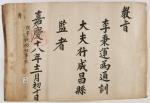 敎旨
李秉運爲通訓
大夫行成昌縣
監者
嘉慶十八年十二月初十日